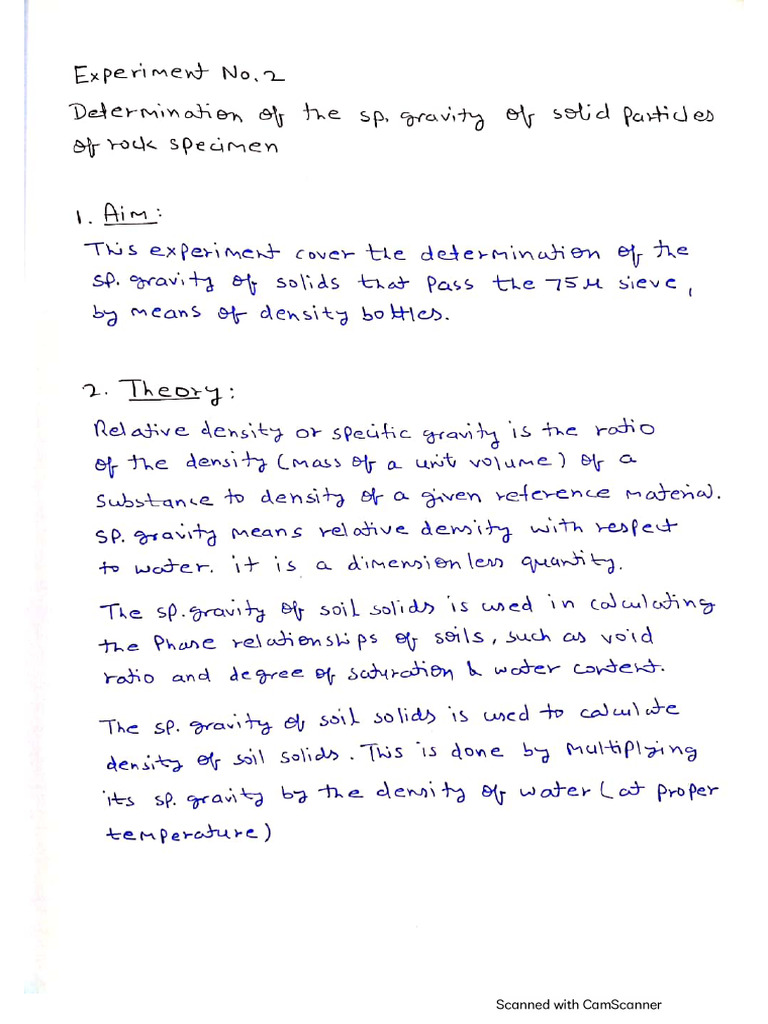 Experiment No.2
Determination of the sp. gravity of solid particles
of rock specimen
1. Aim:
This experiment cover the determination of the
sp. gravity of solids that pass the 75 μ sieve,
by means of density bottles.
2. Theory:
Relative density or specific gravity is the ratio
of the density (mass of a unit volume) of a
substance to density of a given reference material.
sp. gravity means relative density with respect
to water. it is a dimensionless quantity.
The sp. gravity of soil solids is used in calculating
the phase relationships of soils, such as void
ratio and degree of saturation & water content.
The sp. gravity of soil solids is used to calculate
density of soil solids. This is done by multiplying
its sp. gravity by the density of water (at proper
temperature)
Scanned with CamScanner